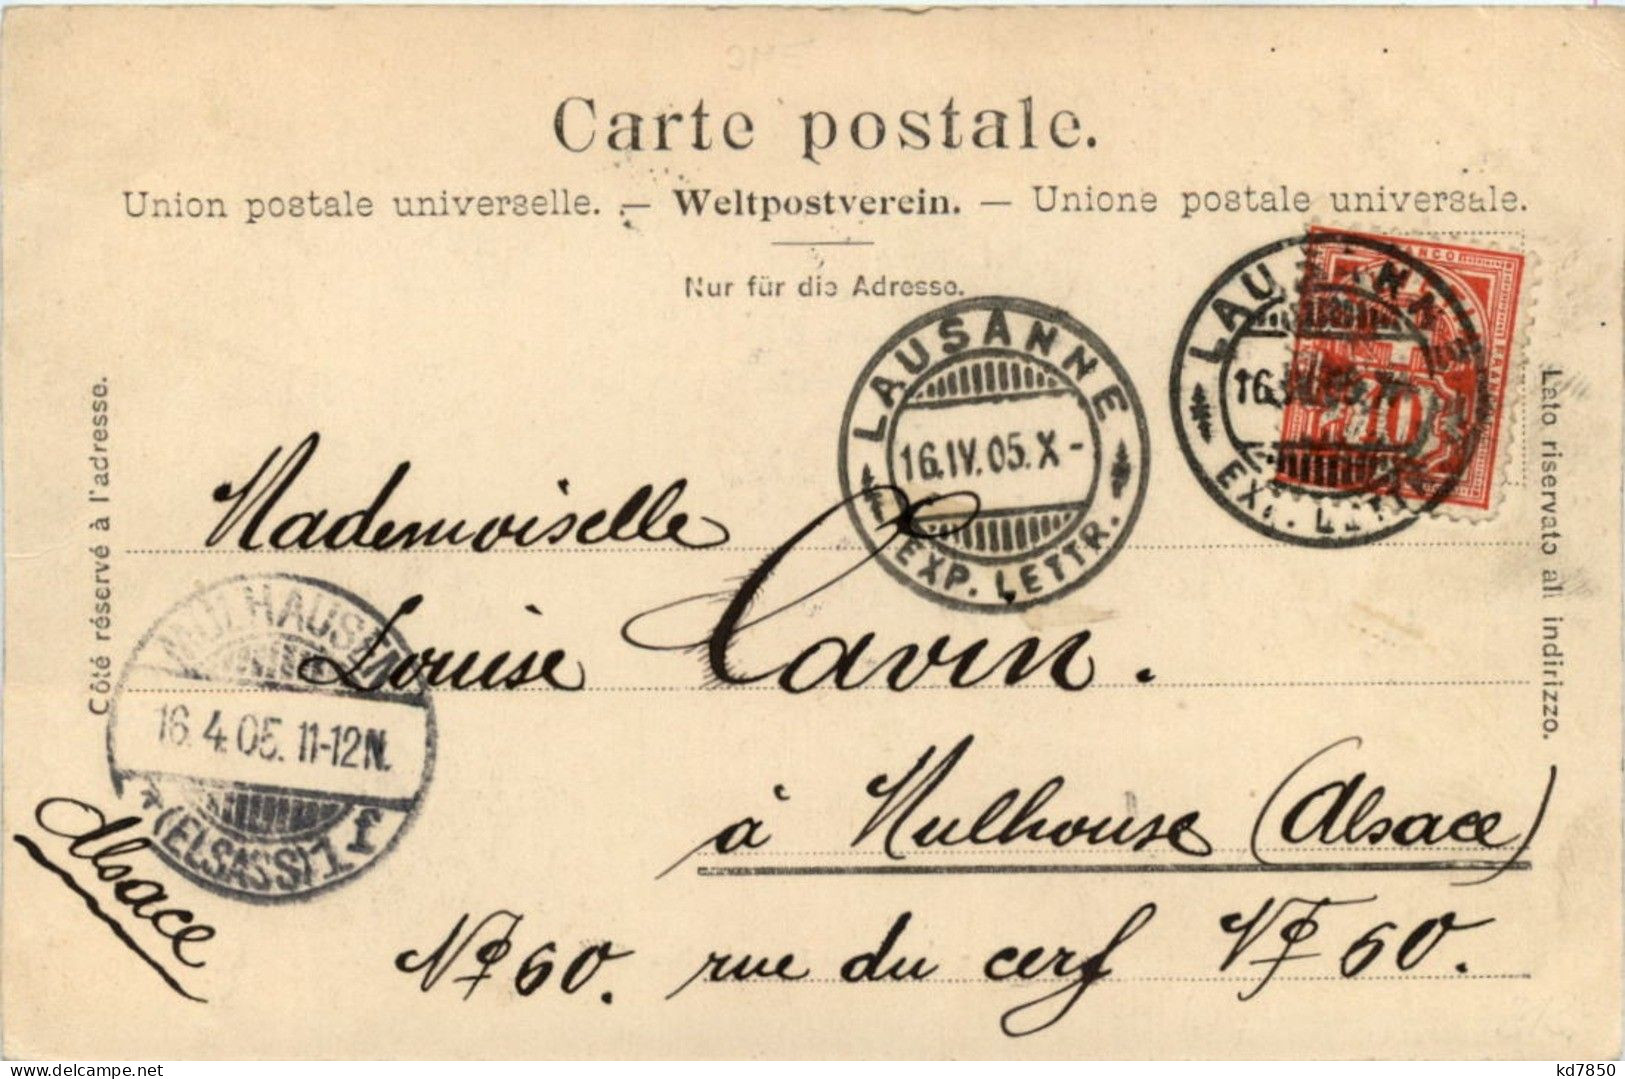 Carte postale.
Union postale universelle. — Weltpostverein. — Unione postale universale.
Nur für die Adresse.
Côté réservé à l'adresse.
Lato riservato all indirizzo.
LAUSANNE
16.IV.05.X-
EXP. LETTR.
LAUSANNE
16.IV.05.X
EXP. LETTR.
FRANCO
10
Mademoiselle
Louise Cavin.
à Mulhouse (Alsace)
No 60. rue du cerf No 60.
Alsace
MÜLHAUSEN
16.4.05. 11-12N.
* (ELSASS) 1 f
kd7850